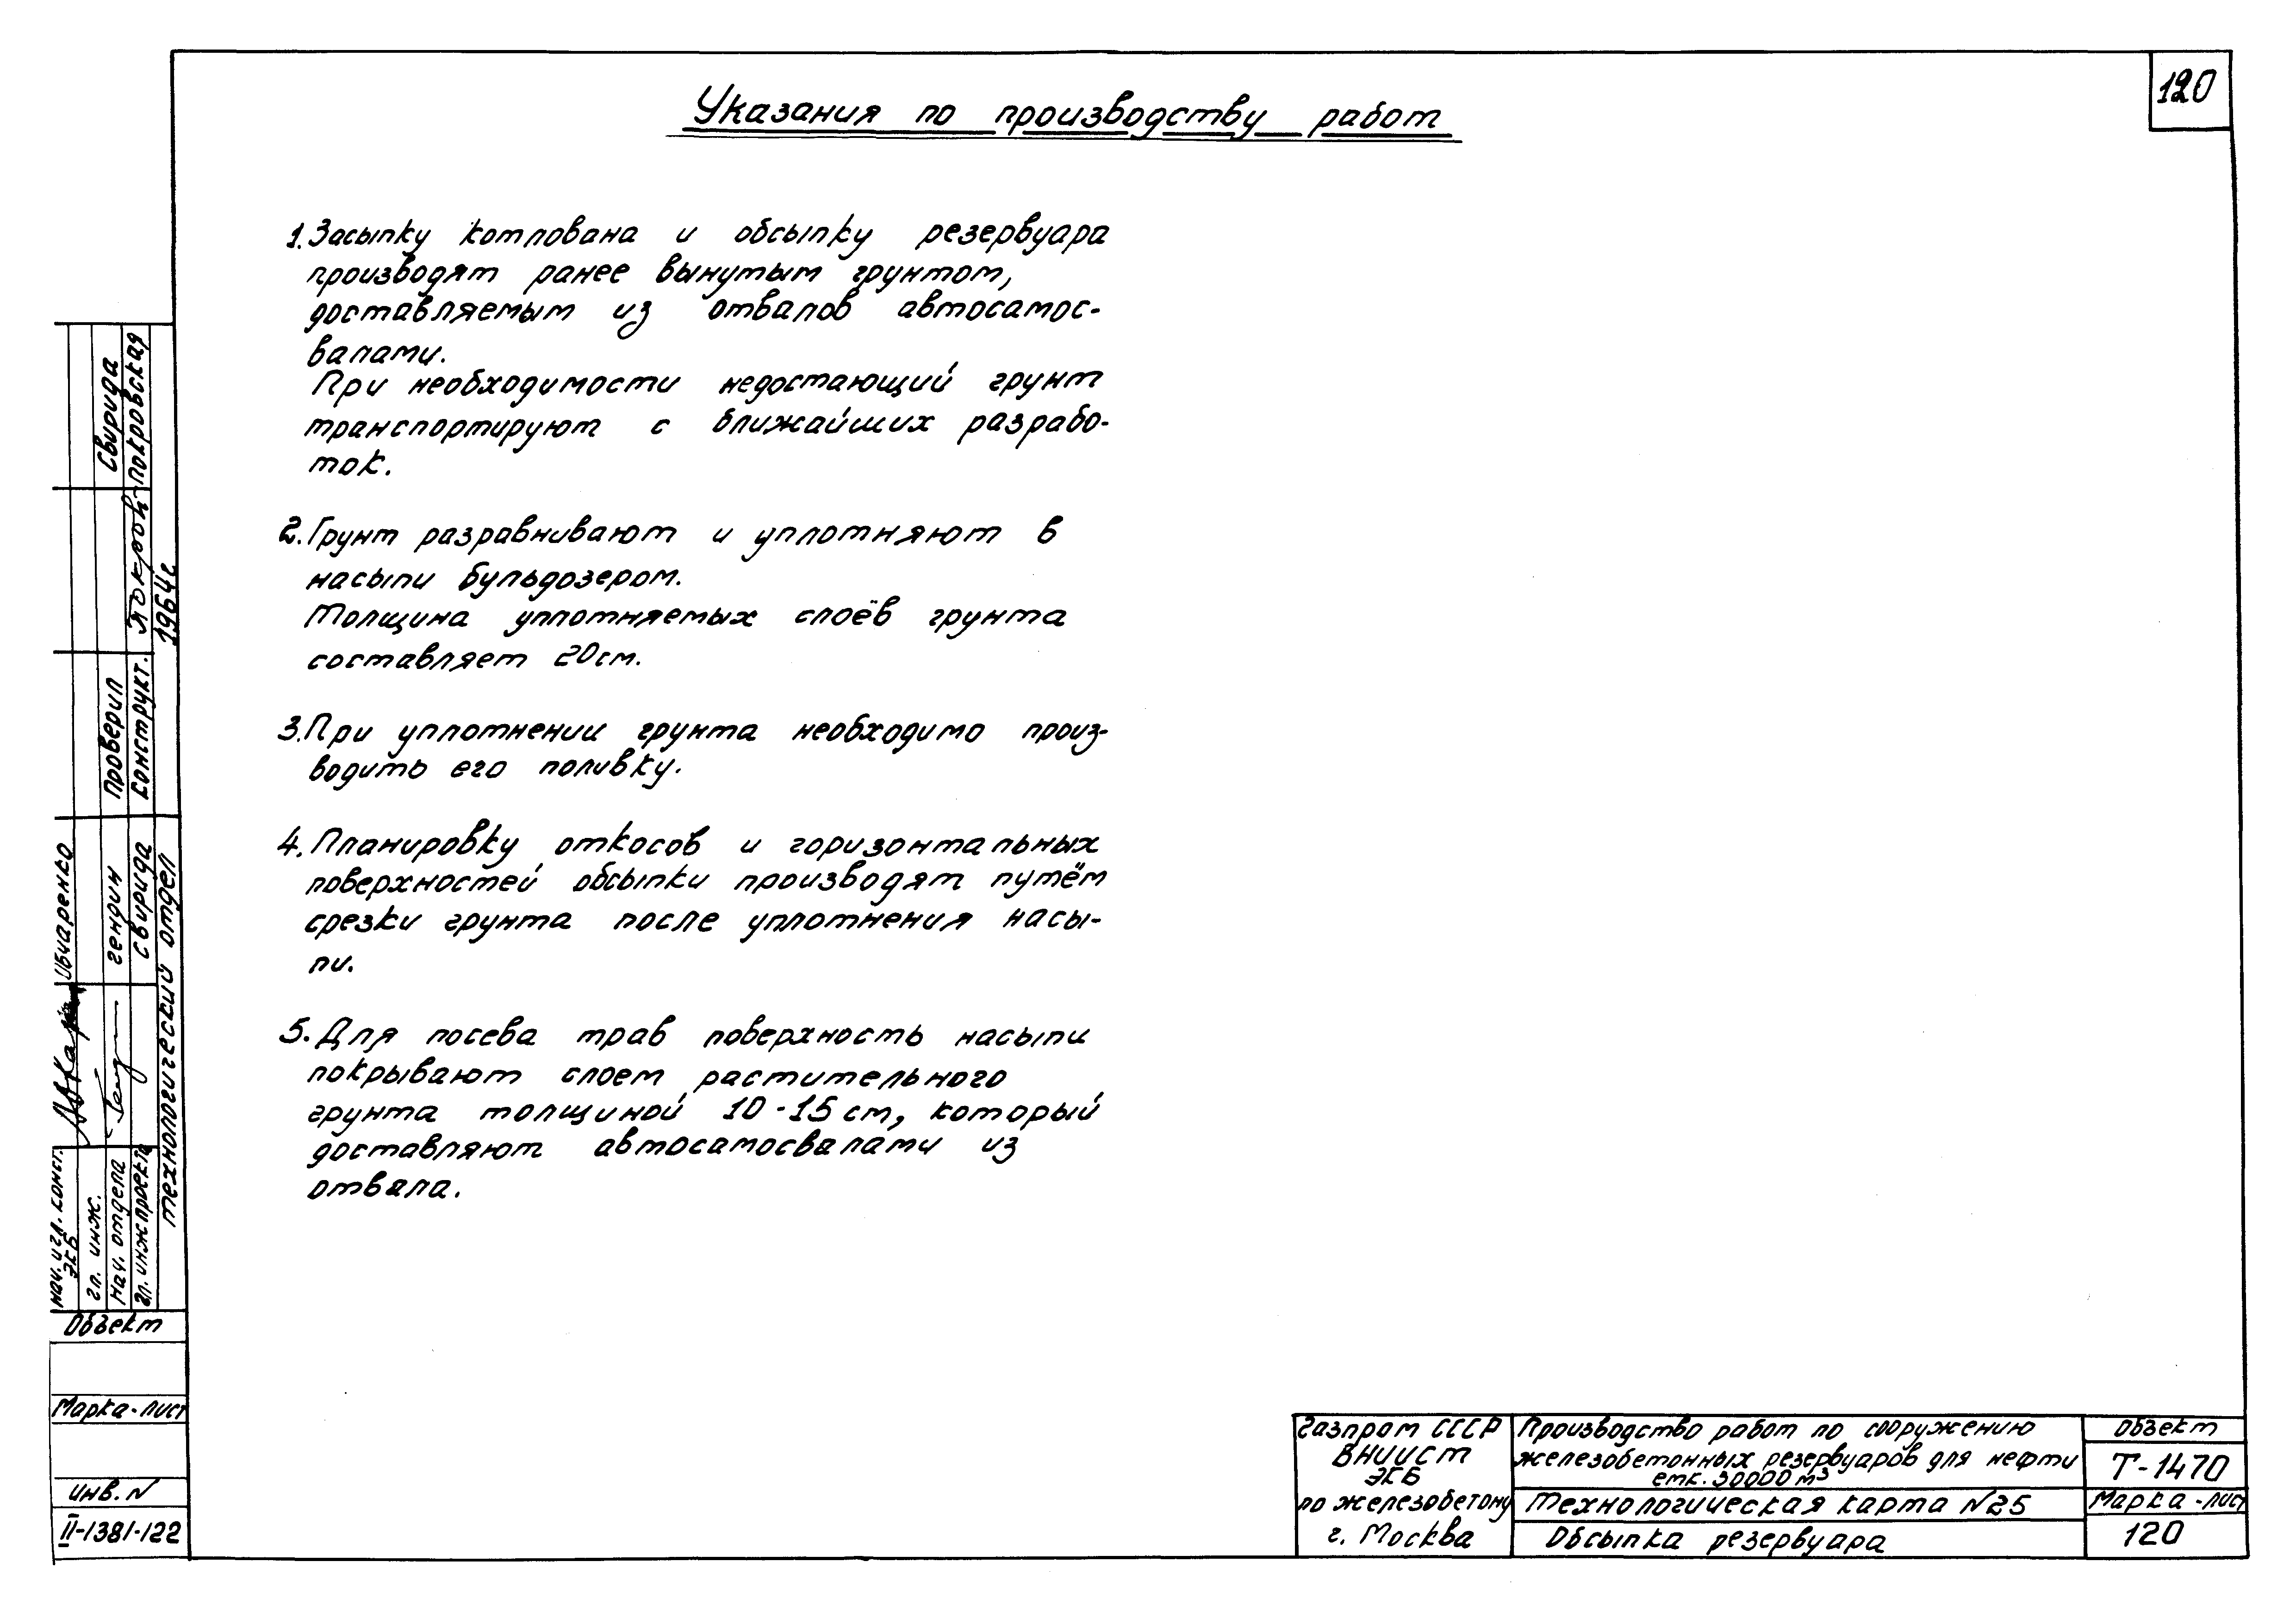 120
Указания по производству работ
1. Засыпку котлована и обсыпку резервуара
производят ранее вынутым грунтом,
доставляемым из отвалов автосамос-
валами.
При необходимости недостающий грунт
транспортируют с ближайших разрабо-
ток.
2. Грунт разравнивают и уплотняют в
насыпи бульдозером.
Толщина уплотняемых слоёв грунта
составляет 20см.
3. При уплотнении грунта необходимо произ-
водить его поливку.
4. Планировку откосов и горизонтальных
поверхностей обсыпки производят путём
срезки грунта после уплотнения насы-
пи.
5. Для посева трав поверхность насыпи
покрывают слоем растительного
грунта толщиной 10-15 см, который
доставляют автосамосвалами из
отвала.
Свирида
Покровская
1964г.
Проверил
Конструкт.
Ивиаренко
Гендин
Свирида
Технологический отдел
Нач. и гл. конст.
ЭКБ
Гл. инж.
Нач. отдела
Гл. инж проекта
Объект
Марка-лист
Инв. N
II-1381-122
Газпром СССР
ВНИИСТ
ЭКБ
по железобетону
г. Москва
Производство работ по сооружению
железобетонных резервуаров для нефти
емк. 30000 м³
Технологическая карта N25
Обсыпка резервуара
Объект
Т-1470
Марка-лист
120